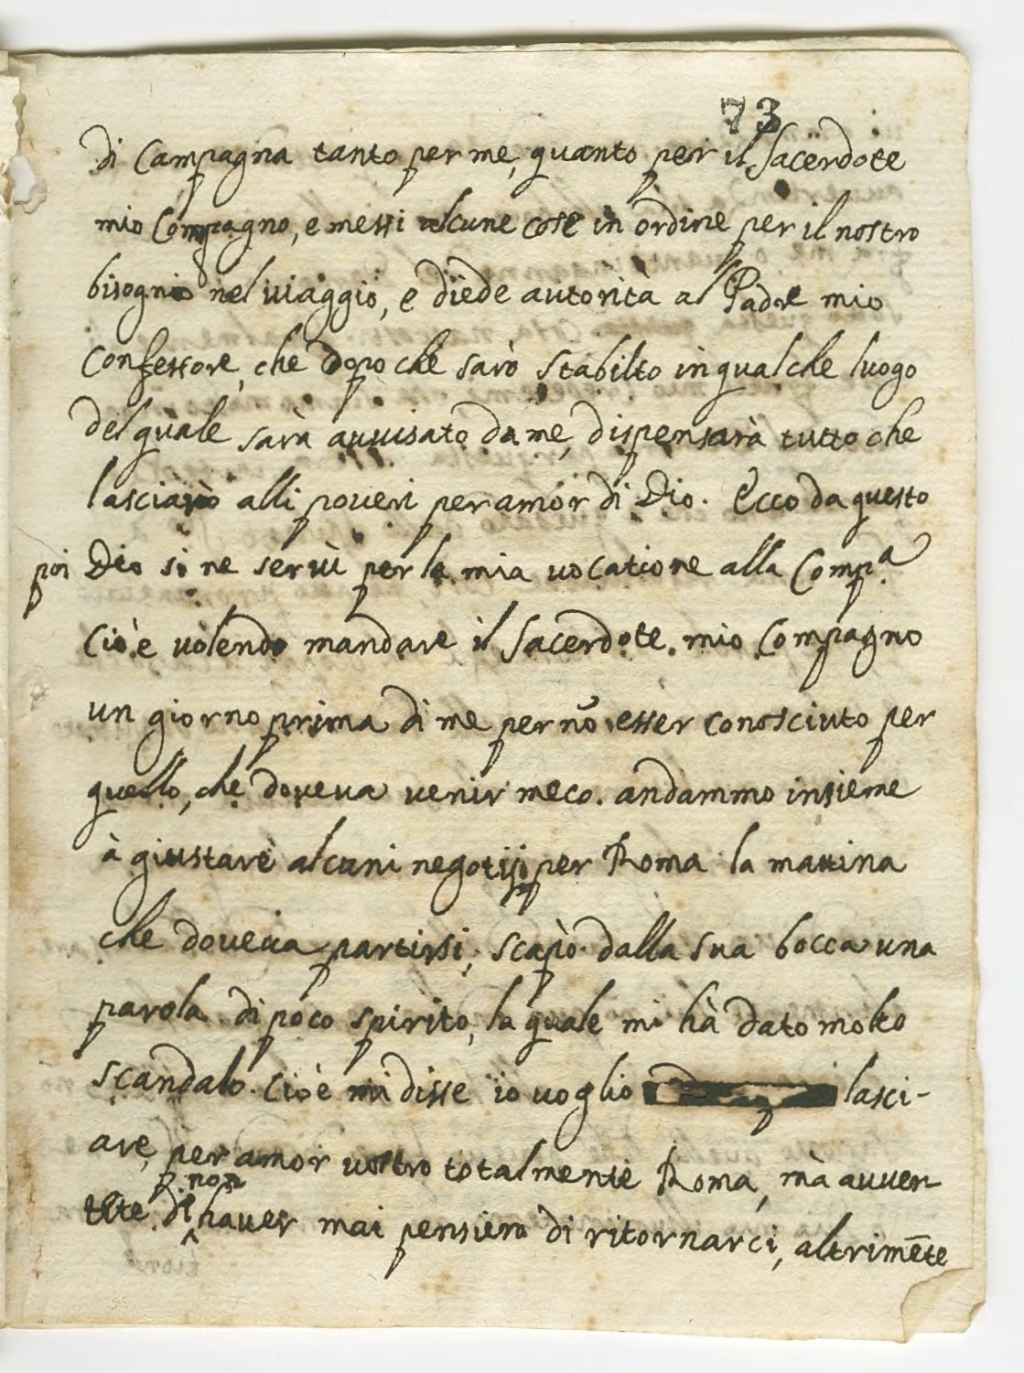 73
di Campagna tanto per me, quanto per il Sacerdote
mio Compagno, e messi alcune cose in ordine per il nostro
bisogno nel uiaggio, e diede autorità al Padre mio
Confessore, che dopo che sarò stabilto in qualche luogo
del quale sarà auuisato da me, dispensarà tutto che
lasciarò alli poueri per amor di Dio. Ecco da questo
poi Dio si ne seruì per la mia uocatione alla Comp.a
Cioè uolendo mandare il Sacerdote mio Compagno
un giorno prima di me per nõ esser conosciuto per
quello, che doueua uenir meco. andammo insieme
à giustare alcuni negotij per Roma la mattina
che doueua partirsi, scapò dalla sua bocca una
parola di poco spirito, la quale mi hà dato molto
scandalo. Cioè mi disse io uoglio lasci-
are, per amor uostro totalmente Roma, mà auuer-
tete di non hauer mai pensiero di ritornarci, altrimẽte